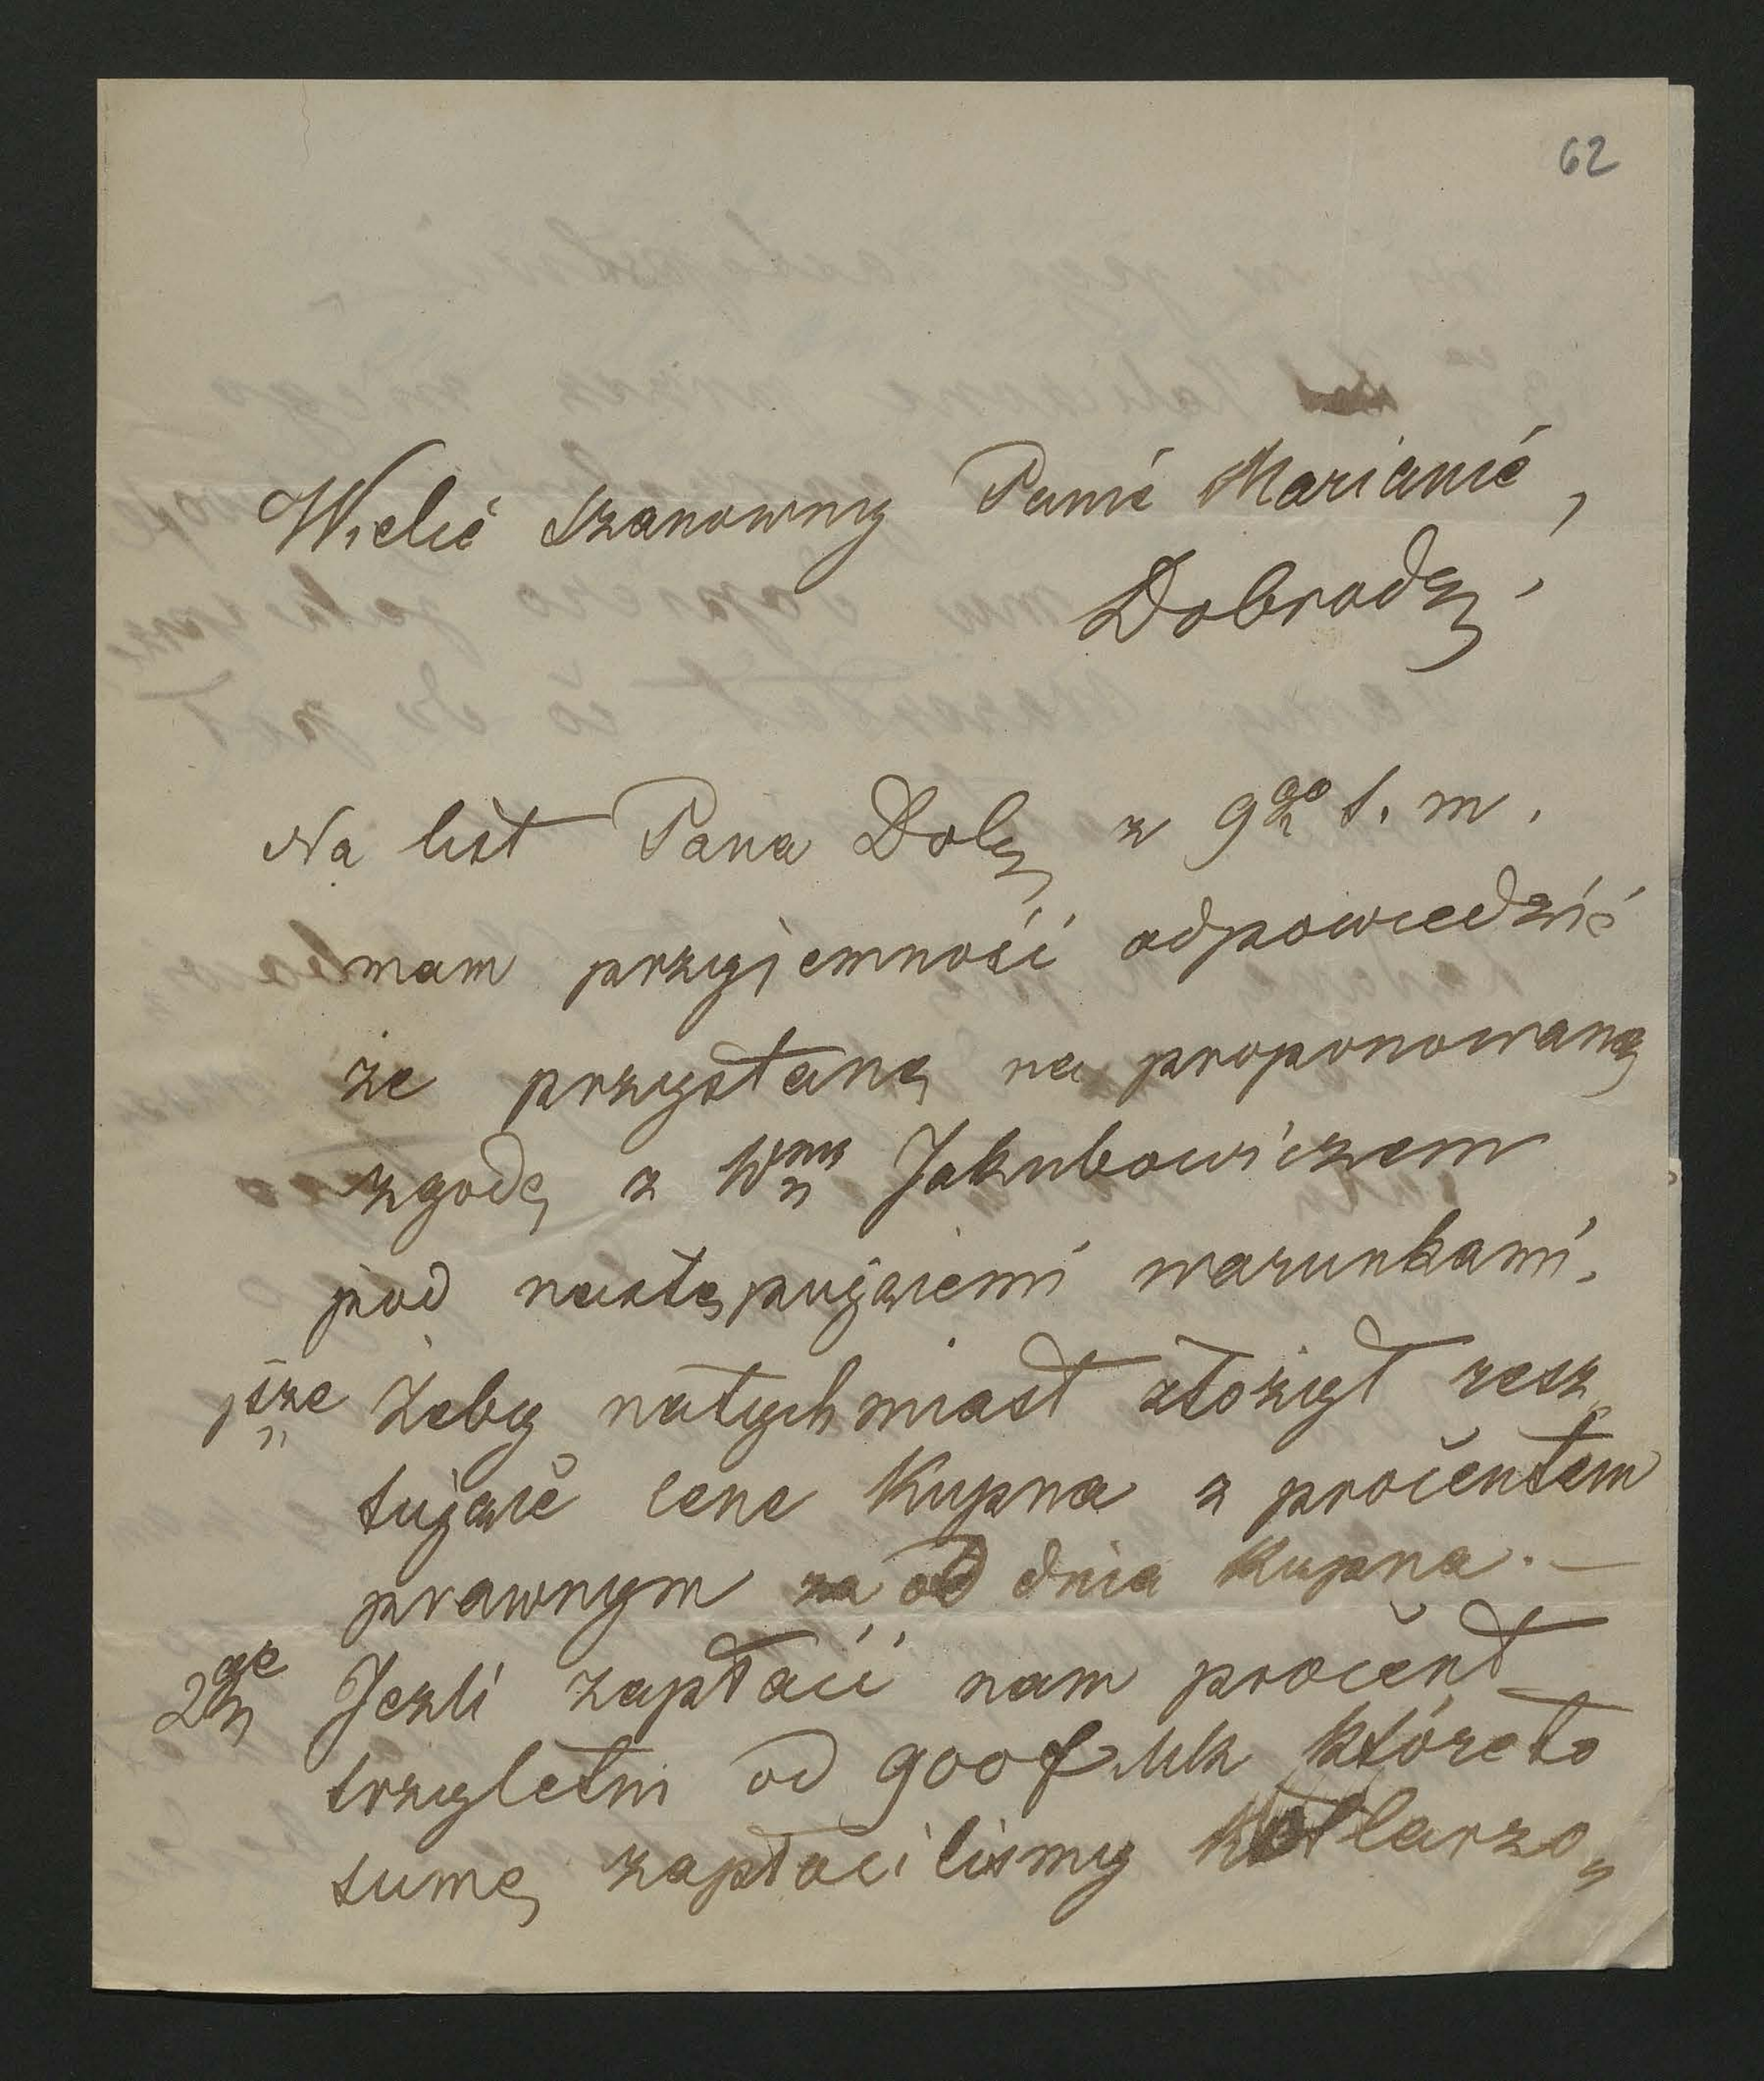 62
Wielie Szanowny Panie Marianie,
Dobrodz,
Na list Pana Dobz z 9go t. m.
mam przyjemność odpowiedzić
że przystanę na proponowaną
zgodę z Wnm Jakubowiczem
pod następująiemi warunkami.
1sze Zeby natychmiast złożył resz
tująie cene Kupna z procentem
prawnym za od dnia Kupna. —
2ge Jezli zapłaci nam procent
trzyletni od 900 f Mk któreto
sumę zapłacilismy Kotlarzo„